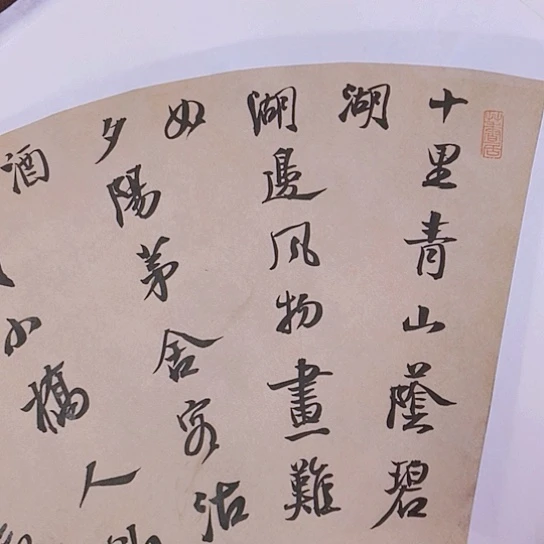 十里青山蔭碧
湖
湖邊风物畫難
如
夕陽茅舍客沽
酒
小橋人